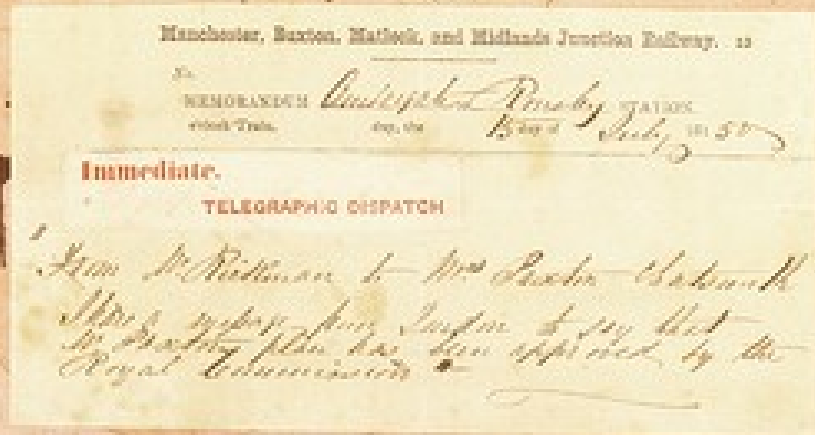 Manchester, Buxton, Matlock, and Midlands Junction Railway. 13
No.
MEMORANDUM Rowsley STATION.
o'clock Train, day, the 15 day of July 1850
Immediate.
TELEGRAPHIC DISPATCH
From Mr to Mrs Paxton Chatsworth
from London to say that
Mr Paxton's plan has been approved by the
Royal Commission